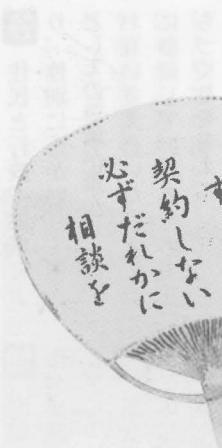 契約しない
必ずだれかに
相談を